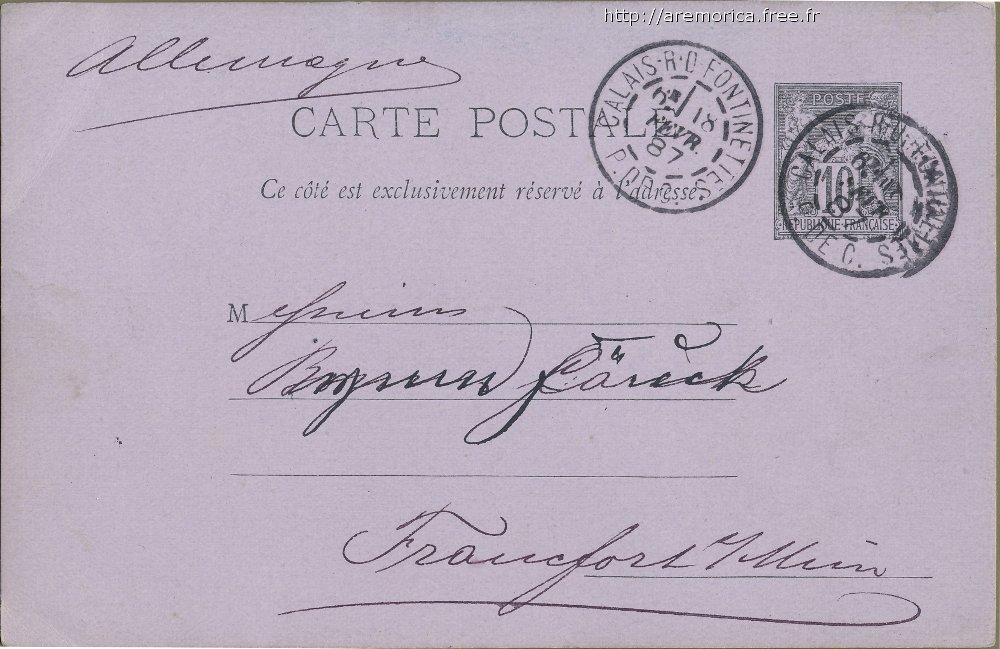 http://aremorica.free.fr
Allemagne
CARTE POSTALE
Ce côté est exclusivement réservé à l'adresse.
CALAIS-R-D-FONTINETTES
18
FEVR.
87
P. DE C.
POSTES
10
REPUBLIQUE FRANÇAISE
CALAIS-R-D-FONTINETTES
P. DE C.
Messieurs
Francfort s/Mein